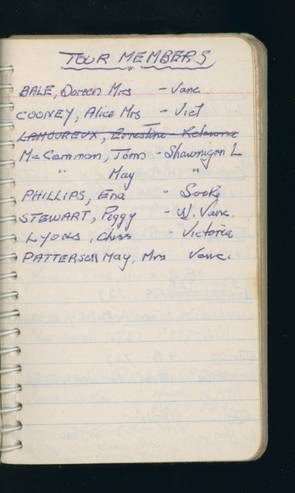 TOUR MEMBERS
BALE, Doreen Mrs - Vanc
COONEY, Alice Mrs - Vict
LAMOUREUX, Ernestine - Kelowna
McCammon, Tom - Shawnigan L
" May "
PHILLIPS, Ena - Sooke
STEWART, Peggy - W. Vanc.
LYONS, Chris - Victoria
PATTERSON May, Mrs Vanc.